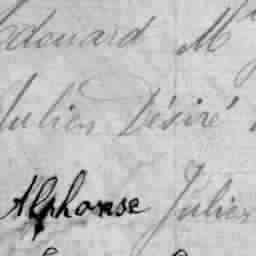 Edouard M
Julien Désiré
Alphonse Julien